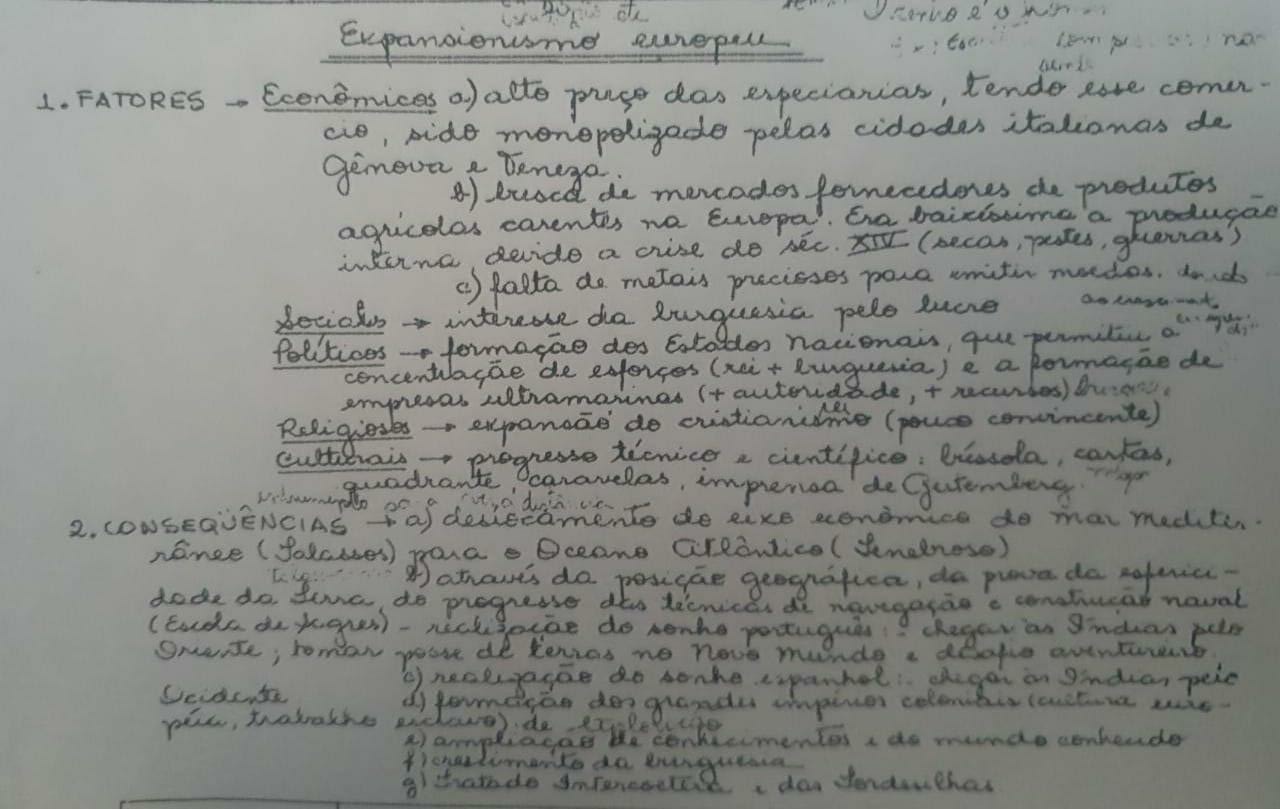 de
Expansionismo europeu
1. FATORES → Econômicos a) alto preço das especiarias, tendo esse comér-
cio, sido monopolizado pelas cidades italianas de
Gênova e Veneza.
b) busca de mercados fornecedores de produtos
agrícolas carentes na Europa. Era baixíssima a produção
interna, devido a crise do séc. XIV (secas, pestes, guerras)
c) falta de metais preciosos para emitir moedas.
Sociais → interesse da burguesia pelo lucro
Políticos → formação dos Estados Nacionais, que permitiu a
concentração de esforços (rei + burguesia) e a formação de
empresas ultramarinas (+ autoridade, + recursos)
rei
Religiosos → expansão do cristianismo (pouco convincente)
Culturais → progresso técnico e científico: bússola, cartas,
quadrante, caravelas, imprensa de Gutemberg.
2. CONSEQÜÊNCIAS → a) deslocamento do eixo econômico do mar Mediter-
râneo (Talassos) para o Oceano Atlântico (Tenebroso)
b) através da posição geográfica, da prova da esferici-
dade da Terra, do progresso das técnicas de navegação e construção naval
(Escola de Sagres) - realização do sonho português: chegar às Índias pelo
Oriente; tomar posse de terras no Novo Mundo e desafio aventureiro.
c) realização do sonho espanhol: chegar às Índias pelo
Ocidente
d) formação dos grandes impérios coloniais (cultura euro-
péia, trabalho escravo) de exploração
e) ampliação de conhecimentos e do mundo conhecido
f) crescimento da burguesia
g) Tratado Intercoetera e das Tordesilhas